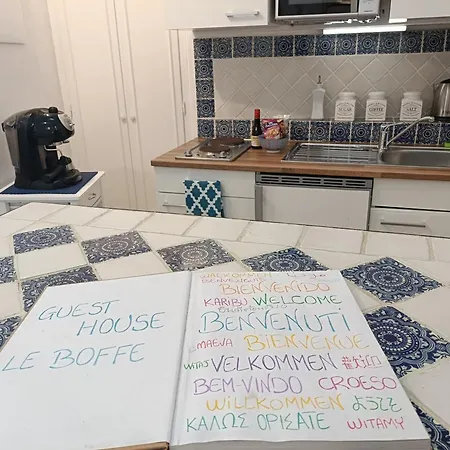 SUGAR
COFFEE
SALT
GUEST
HOUSE
LE BOFFE
WALKOMMEN
BIENVENIDO
KARIBU WELCOME
BENVENUTI
MAEVA BIENVENUE
WITAJ VELKOMMEN
BEM-VINDO CROESO
WiLLKOMMEN ようこそ
ΚΑΛΩΣ ΟΡΙΣΑΤΕ WITAMY